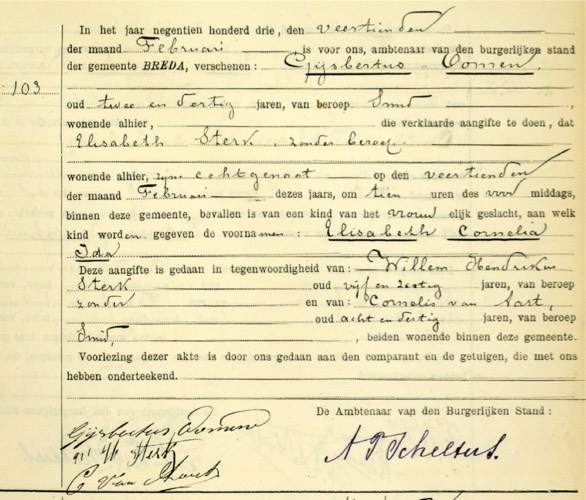 In het jaar negentien honderd drie, den veertienden
der maand Februari, is voor ons, ambtenaar van den burgerlijken stand
der gemeente BREDA, verschenen: Gijsbertus Oomen.
103
oud twee en dertig jaren, van beroep Smid
wonende alhier, die verklaarde aangifte te doen, dat
Elisabeth Sterk, zonder beroep
wonende alhier, zijne echtgenoot op den veertienden
der maand Februari dezes jaars, om tien uren des voor middags,
binnen deze gemeente, bevallen is van een kind van het vrouw elijk geslacht, aan welk
kind worden gegeven de voornamen: Elisabeth Cornelia
Ida
Deze aangifte is gedaan in tegenwoordigheid van: Willem Hendrikus
Sterk oud vijf en zestig jaren, van beroep
zonder en van: Cornelis van
oud acht en dertig jaren, van beroep
Smid, beiden wonende binnen deze gemeente.
Voorlezing dezer akte is door ons gedaan aan den comparant en de getuigen, die met ons
hebben onderteekend.
De Ambtenaar van den Burgerlijken Stand:
Gijsbertus Oomen
Sterk
C. van